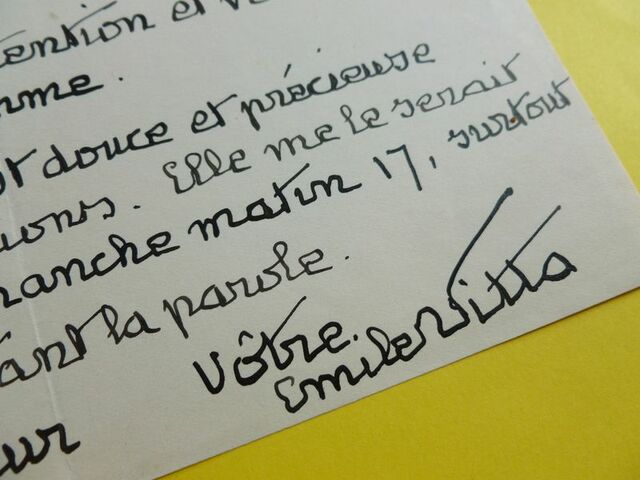 tention et v
rme.
t douce et précieuse
ions. Elle me le serait
manche matin 17, surtout
ant la parole.
Vôtre.
Emile Vitta
ur